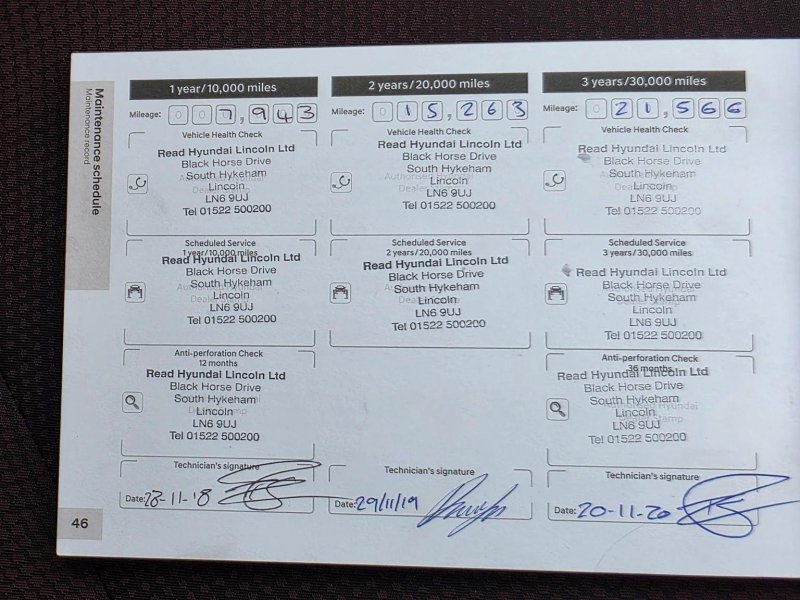 Maintenance schedule
Maintenance record
1 year/10,000 miles
Mileage: 007,943
Vehicle Health Check
Read Hyundai Lincoln Ltd
Black Horse Drive
South Hykeham
Lincoln
LN6 9UJ
Tel 01522 500200
Scheduled Service
1 year/10,000 miles
Read Hyundai Lincoln Ltd
Black Horse Drive
South Hykeham
Lincoln
LN6 9UJ
Tel 01522 500200
Anti-perforation Check
12 months
Read Hyundai Lincoln Ltd
Black Horse Drive
South Hykeham
Lincoln
LN6 9UJ
Tel 01522 500200
Technician's signature
Date: 28-11-18
2 years/20,000 miles
Mileage: 015,263
Vehicle Health Check
Read Hyundai Lincoln Ltd
Black Horse Drive
South Hykeham
Lincoln
LN6 9UJ
Tel 01522 500200
Scheduled Service
2 years/20,000 miles
Read Hyundai Lincoln Ltd
Black Horse Drive
South Hykeham
Lincoln
LN6 9UJ
Tel 01522 500200
Technician's signature
Date: 29/11/19
3 years/30,000 miles
Mileage: 021,566
Vehicle Health Check
Read Hyundai Lincoln Ltd
Black Horse Drive
South Hykeham
Lincoln
LN6 9UJ
Tel 01522 500200
Scheduled Service
3 years/30,000 miles
Read Hyundai Lincoln Ltd
Black Horse Drive
South Hykeham
Lincoln
LN6 9UJ
Tel 01522 500200
Anti-perforation Check
36 months
Read Hyundai Lincoln Ltd
Black Horse Drive
South Hykeham
Lincoln
LN6 9UJ
Tel 01522 500200
Technician's signature
Date: 20-11-20
46